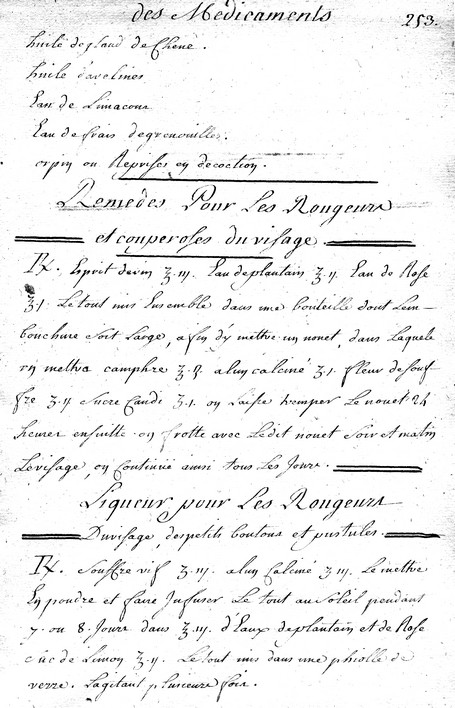 des Medicaments 253.
huile de gland de Chene.
huile davelines
Eau de Limacons
Eau de frais de grenouilles.
orpin ou Reprises en decoction.
Remedes Pour Les Rongeurs
et couperoses du visage.
Esprit de vin ʒ Eau de plantain ʒ Eau de Rose
ʒ1. Le tout mis Ensemble dans une bouteille dont Lem-
bouchure soit Large, afin dy mettre un nouet, dans Laquele
mettra camphre ʒ alun calciné ʒ1. fleur de souf
fre ʒ Sucre Candi ʒ1. on Laisse tremper Le nouet 24
heures ensuitte on frotte avec Ledit nouet Soir et matin
Le visage, on Continue ainsi tous Les Jours.
Liqueur pour Les Rongeurs
Du visage, des petits boutons et pustules.
Souffre vif ʒ alun Calciné ʒ Le mettre
En poudre et faire Infuser Le tout au Soleil pendant
7. ou 8. Jours dans ʒ d'Eaux de plantain et de Rose
suc de Limon ʒ Le tout mis dans une phiolle de
verre. Lagitant plusieurs fois.